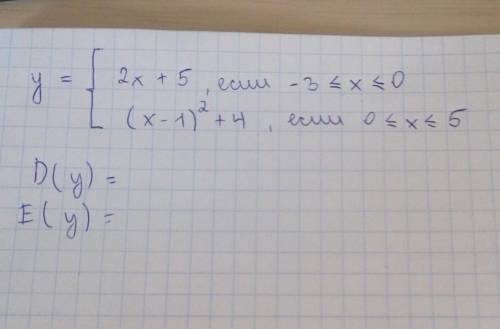 y = [ 2x + 5 , если -3 ≤ x ≤ 0
(x - 1)² + 4 , если 0 ≤ x ≤ 5
D(y) =
E(y) =